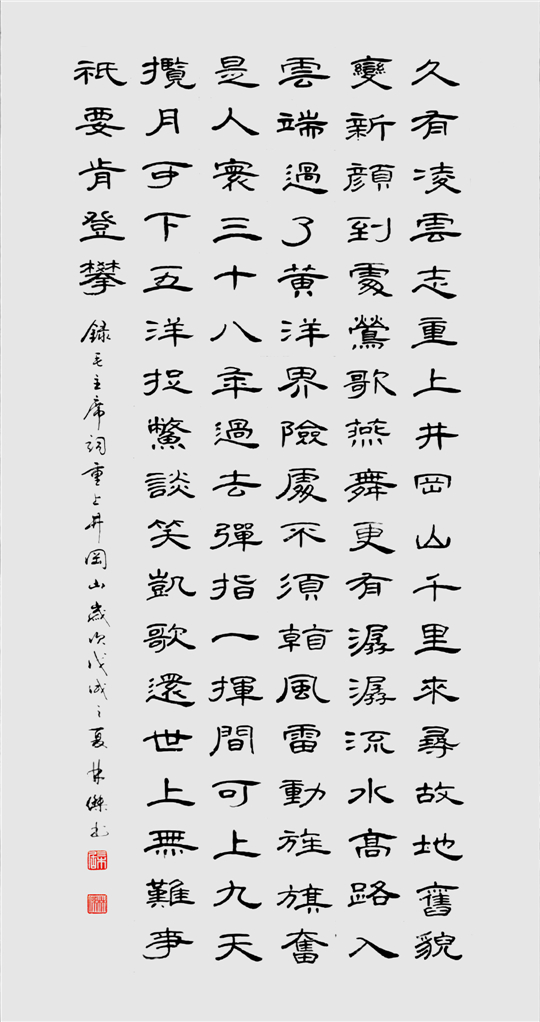 久有凌雲志重上井岡山千里來尋故地舊貌
變新顔到處鶯歌燕舞更有潺潺流水高路入
雲端過了黄洋界險處不須看風雷動旌旗奮
是人寰三十八年過去彈指一揮間可上九天
攬月可下五洋捉鱉談笑凱歌還世上無難事
祇要肯登攀
録毛主席詞重上井岡山歲次戊戌之夏林傑書